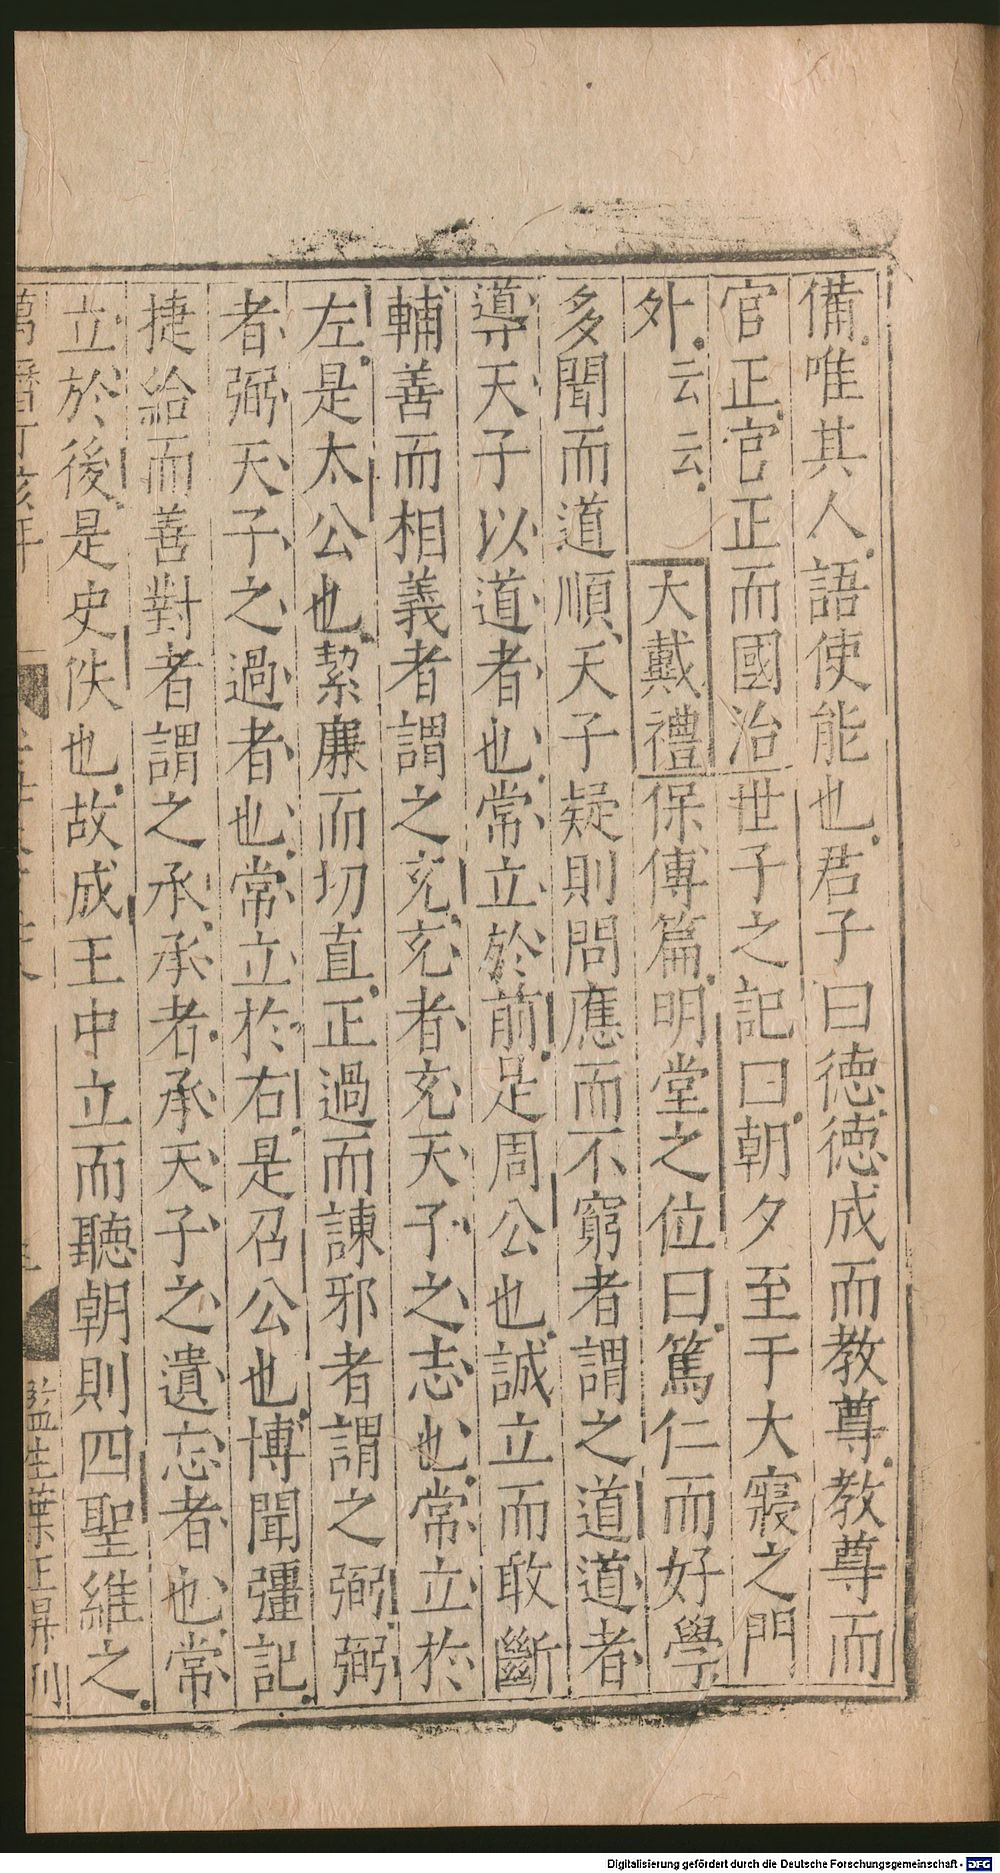 備唯其人語使能也君子曰德德成而教尊教尊而
官正官正而國治世子之記曰朝夕至于大寢之門
外云云 大戴禮保傅篇明堂之位曰篤仁而好學
多聞而道順天子疑則問應而不窮者謂之道道者
導天子以道者也常立於前是周公也誠立而敢斷
輔善而相義者謂之充充者充天子之志也常立於
左是太公也絜廉而切直正過而諫邪者謂之弼弼
者弼天子之過者也常立於右是召公也博聞彊記
捷給而善對者謂之承承者承天子之遺忘者也常
立於後是史佚也故成王中立而聽朝則四聖維之
萬曆丁亥年
監生葉正昇刊
Digitalisierung gefördert durch die Deutsche Forschungsgemeinschaft - DFG